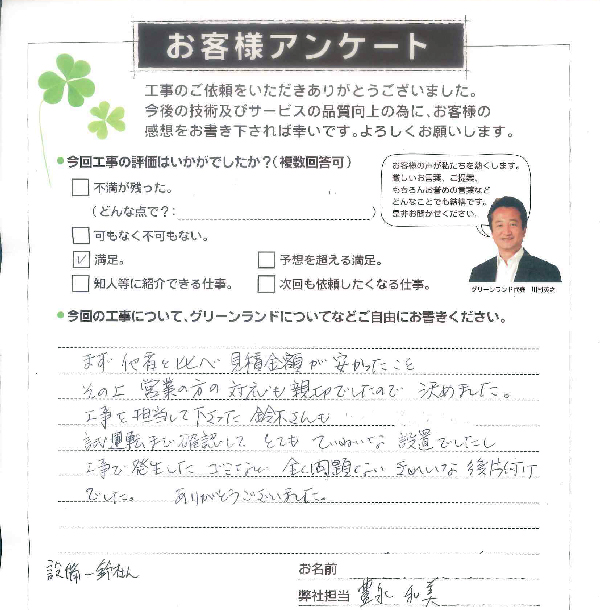 お客様アンケート
工事のご依頼をいただきありがとうございました。
今後の技術及びサービスの品質向上の為に、お客様の
感想をお書き下されば幸いです。よろしくお願いします。
●今回工事の評価はいかがでしたか?(複数回答可)
不満が残った。
(どんな点で?:　　　)
可もなく不可もない。
✓ 満足。
予想を超える満足。
知人等に紹介できる仕事。
次回も依頼したくなる仕事。
お客様の声が私たちを熱くします。
厳しいお言葉、ご提案、
もちろんお誉めの言葉など
どんなことでも結構です。
是非お聞かせください。
グリーンランド代表
●今回の工事について、グリーンランドについてなどご自由にお書きください。
まず 他者と比べ 見積金額が 安かったこと
その上 営業の方の 対応も 親切でしたので 決めました。
工事を担当して下さった 鈴木さんも
試運転まで 確認して とても ていねいな 設置でしたし
工事で発生した ゴミなども 全く問題ない きれいな 後片付け
でした。 ありがとうございました。
設備-鈴木さん
お名前
弊社担当 豊永 和美